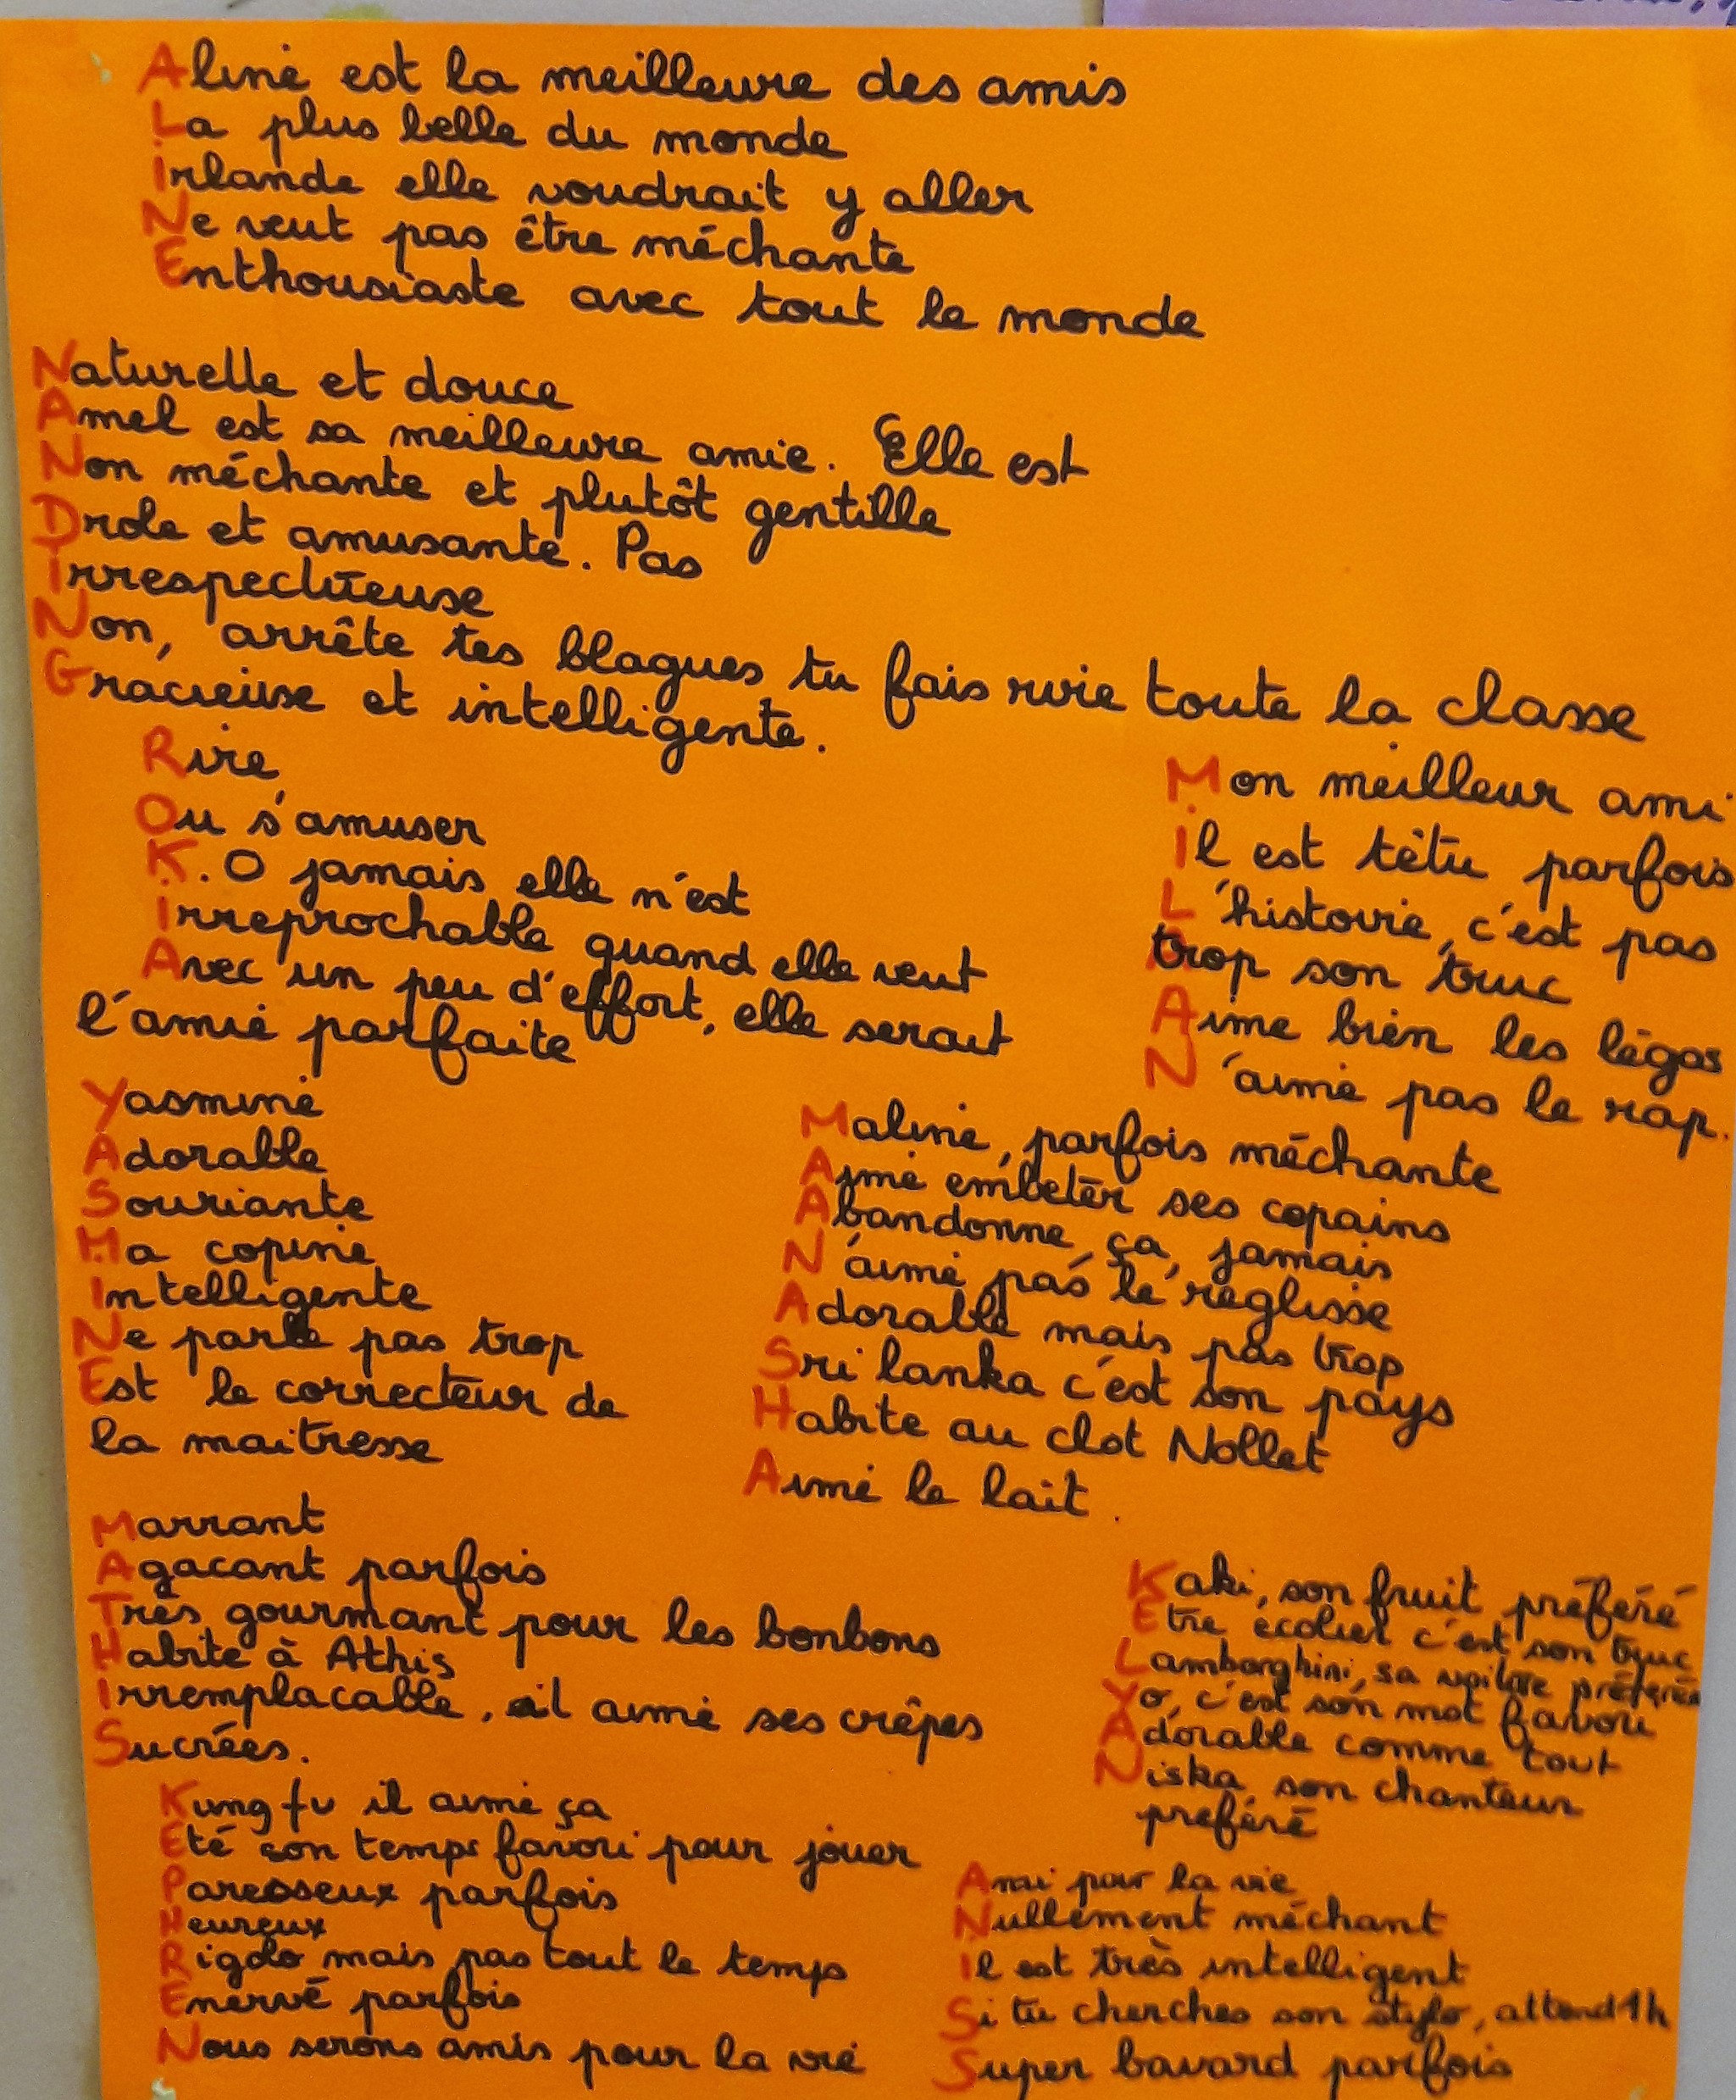 Aline est la meilleure des amis
La plus belle du monde
Irlande elle voudrait y aller
Ne veut pas être méchante
Enthousiaste avec tout le monde
Naturelle et douce
Amel est sa meilleure amie. Elle est
Non méchante et plutôt gentille
Drole et amusante. Pas
Irrespectueuse
Non, arrête tes blagues tu fais rire toute la classe
Gracieuse et intelligente.
Rire
Ou s'amuser
K.O jamais elle n'est
Irreprochable quand elle veut
Avec un peu d'effort, elle serait
l'amie parfaite
Mon meilleur ami
Il est têtu parfois
L'histoire, c'est pas
trop son truc
Aime bien les légos
N'aime pas le rap.
Yasmine
Adorable
Souriante
Ma copine
Intelligente
Ne parle pas trop
Est le correcteur de
la maitresse
Maline, parfois méchante
Aime embeter ses copains
Abandonne, ça, jamais
N'aime pas le réglisse
Adorable mais pas trop
Sri lanka c'est son pays
Habite au clot Nollet
Aime le lait.
Marrant
Agacant parfois
Très gourmant pour les bonbons
Habite à Athis
Irremplacable, il aime ses crêpes
Sucrées.
Kaki, son fruit préféré
Etre écolier c'est son truc
Lamborghini, sa voiture préférée
Yo, c'est son mot favori
Adorable comme tout
Niska son chanteur
préféré
Kung fu il aime ça
Eté son temps favori pour jouer
Paresseux parfois
Heureux
Rigolo mais pas tout le temps
Enervé parfois
Nous serons amis pour la vie
Ami pour la vie
Nullement méchant
Il est très intelligent
Si tu cherches son stylo, attend 1h
Super bavard parfois